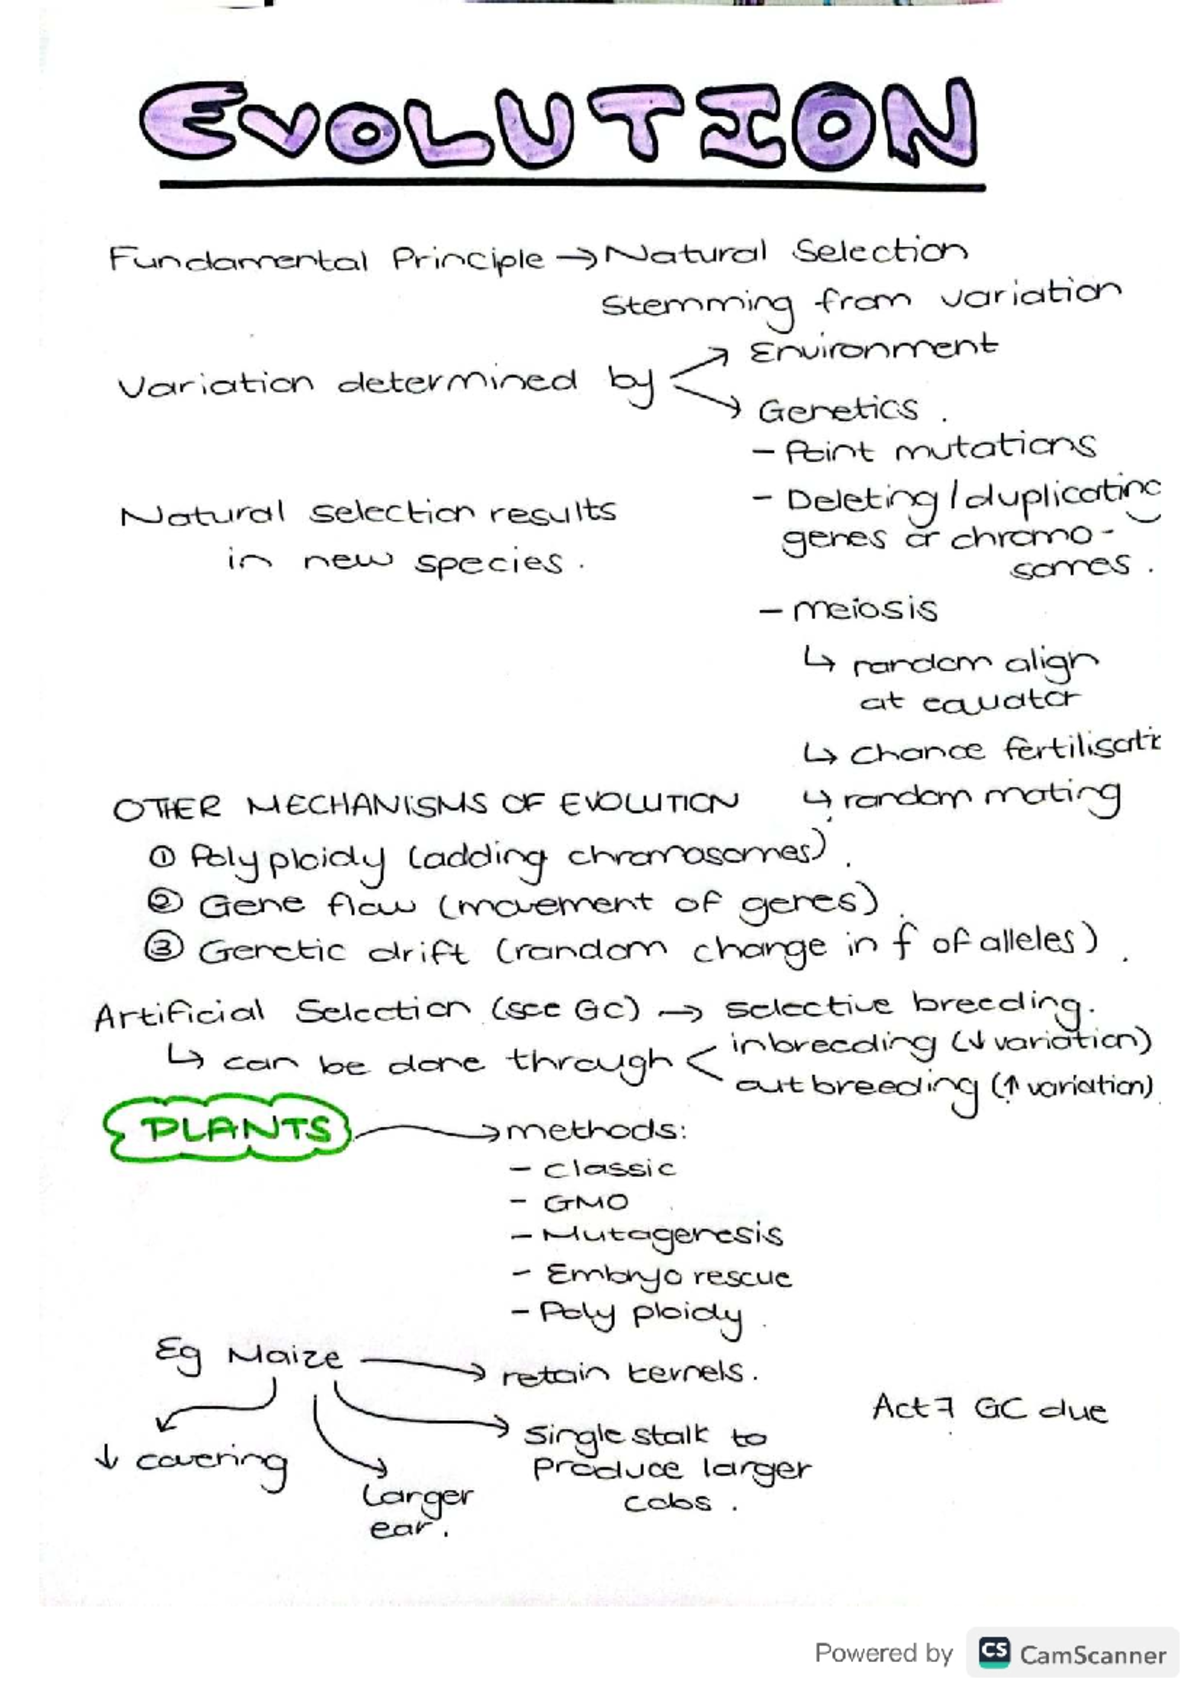 EVOLUTION
Fundamental Principle → Natural Selection
Stemming from variation
Variation determined by
→ Environment
→ Genetics.
- Point mutations
- Deleting / duplicating
genes or chromo-
somes.
Natural selection results
in new species.
- meiosis
↳ random align
at equator
↳ chance fertilisati
↳ random mating
OTHER MECHANISMS OF EVOLUTION
① Polyploidy (adding chromosomes).
② Gene flow (movement of genes).
③ Genetic drift (random change in f of alleles).
Artificial Selection (see GC) → selective breeding.
↳ can be done through < inbreeding (↓ variation)
outbreeding (↑ variation)
PLANTS → methods:
- Classic
- GMO
- Mutagenesis
- Embryo rescue
- Poly ploidy.
Eg Maize → retain kernels.
Act 7 GC due
↓ covering
Larger
ear.
Single stalk to
produce larger
cobs.
Powered by CS CamScanner